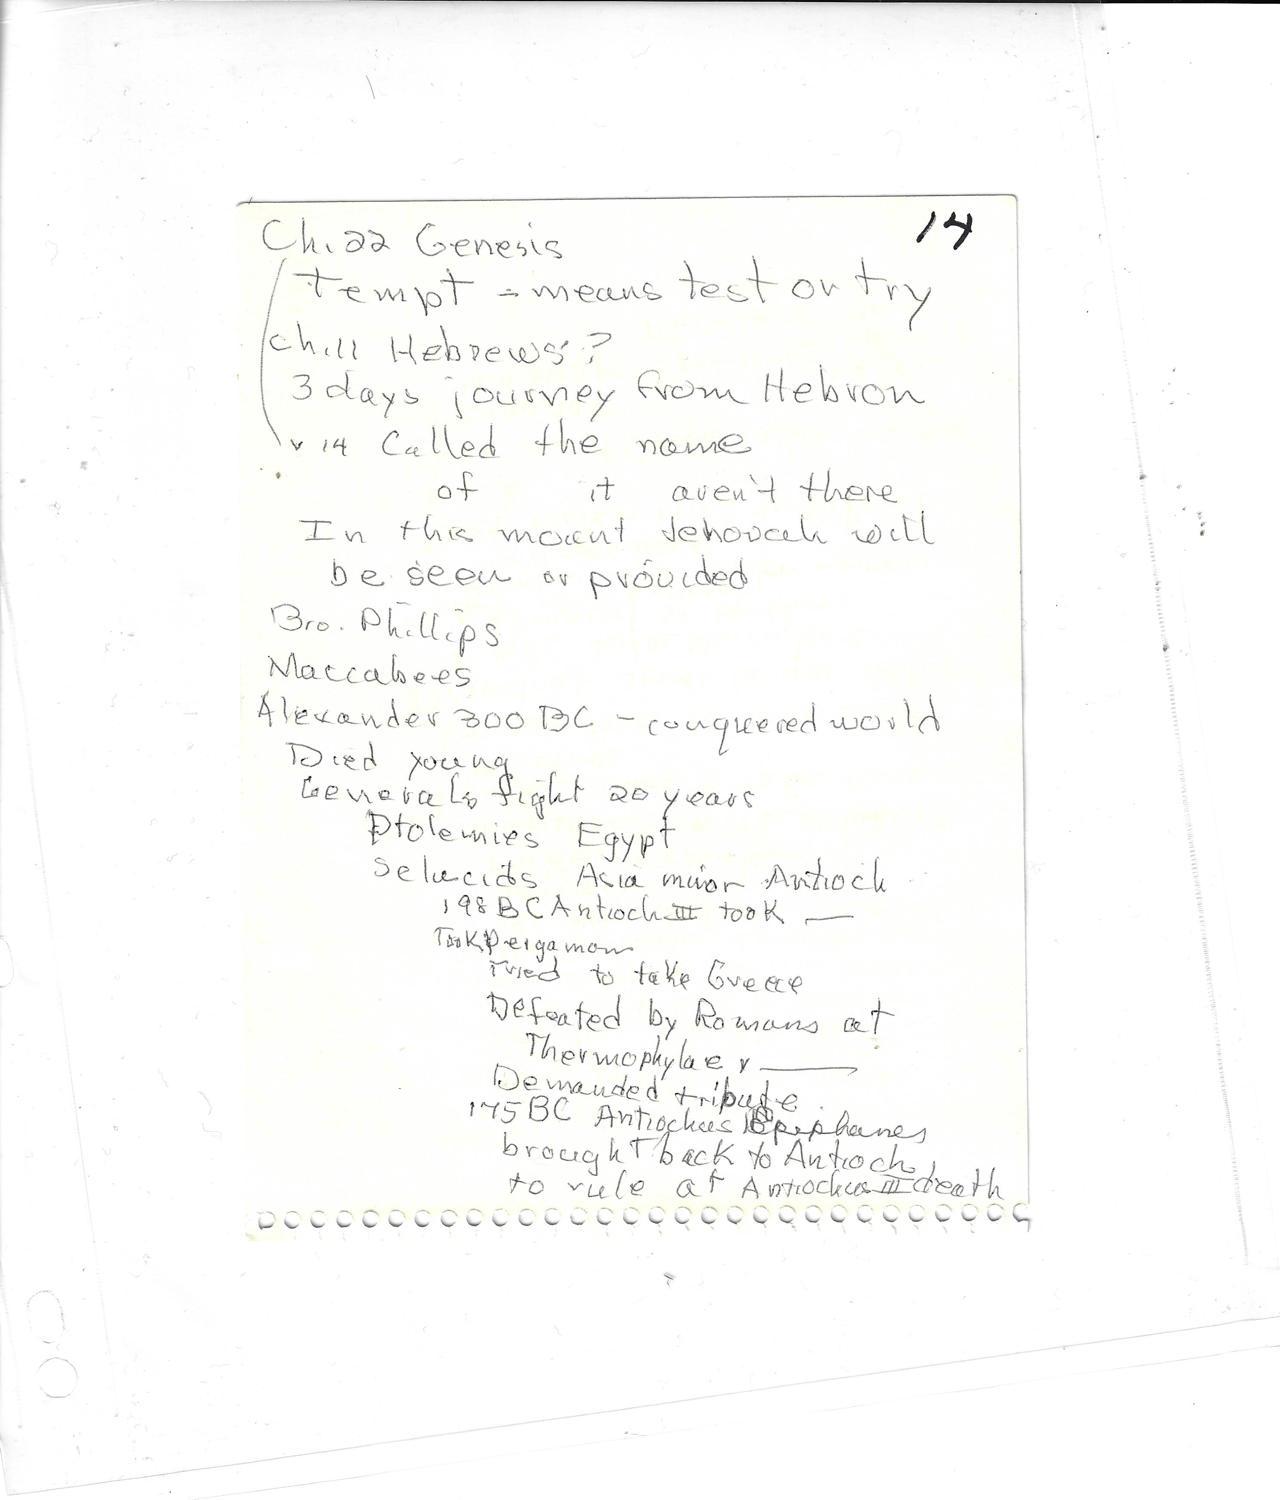 14
Ch. 22 Genesis
tempt - means test or try
Ch. 11 Hebrews?
3 days journey from Hebron
v 14 Called the name
of it aren't there
In this mount Jehovah will
be seen or provided
Bro. Phillips
Maccabees
Alexander 300 BC - conquered world
Died young
Generals fight 20 years
Ptolemies Egypt
Selucids Asia minor Antioch
198 BC Antioch III took —
Took Pergamom
Tried to take Greece
Defeated by Romans at
Thermophylae & ——
Demanded tribute
175 BC Antiochus Epiphanes
brought back to Antioch
to rule at Antiochus III death